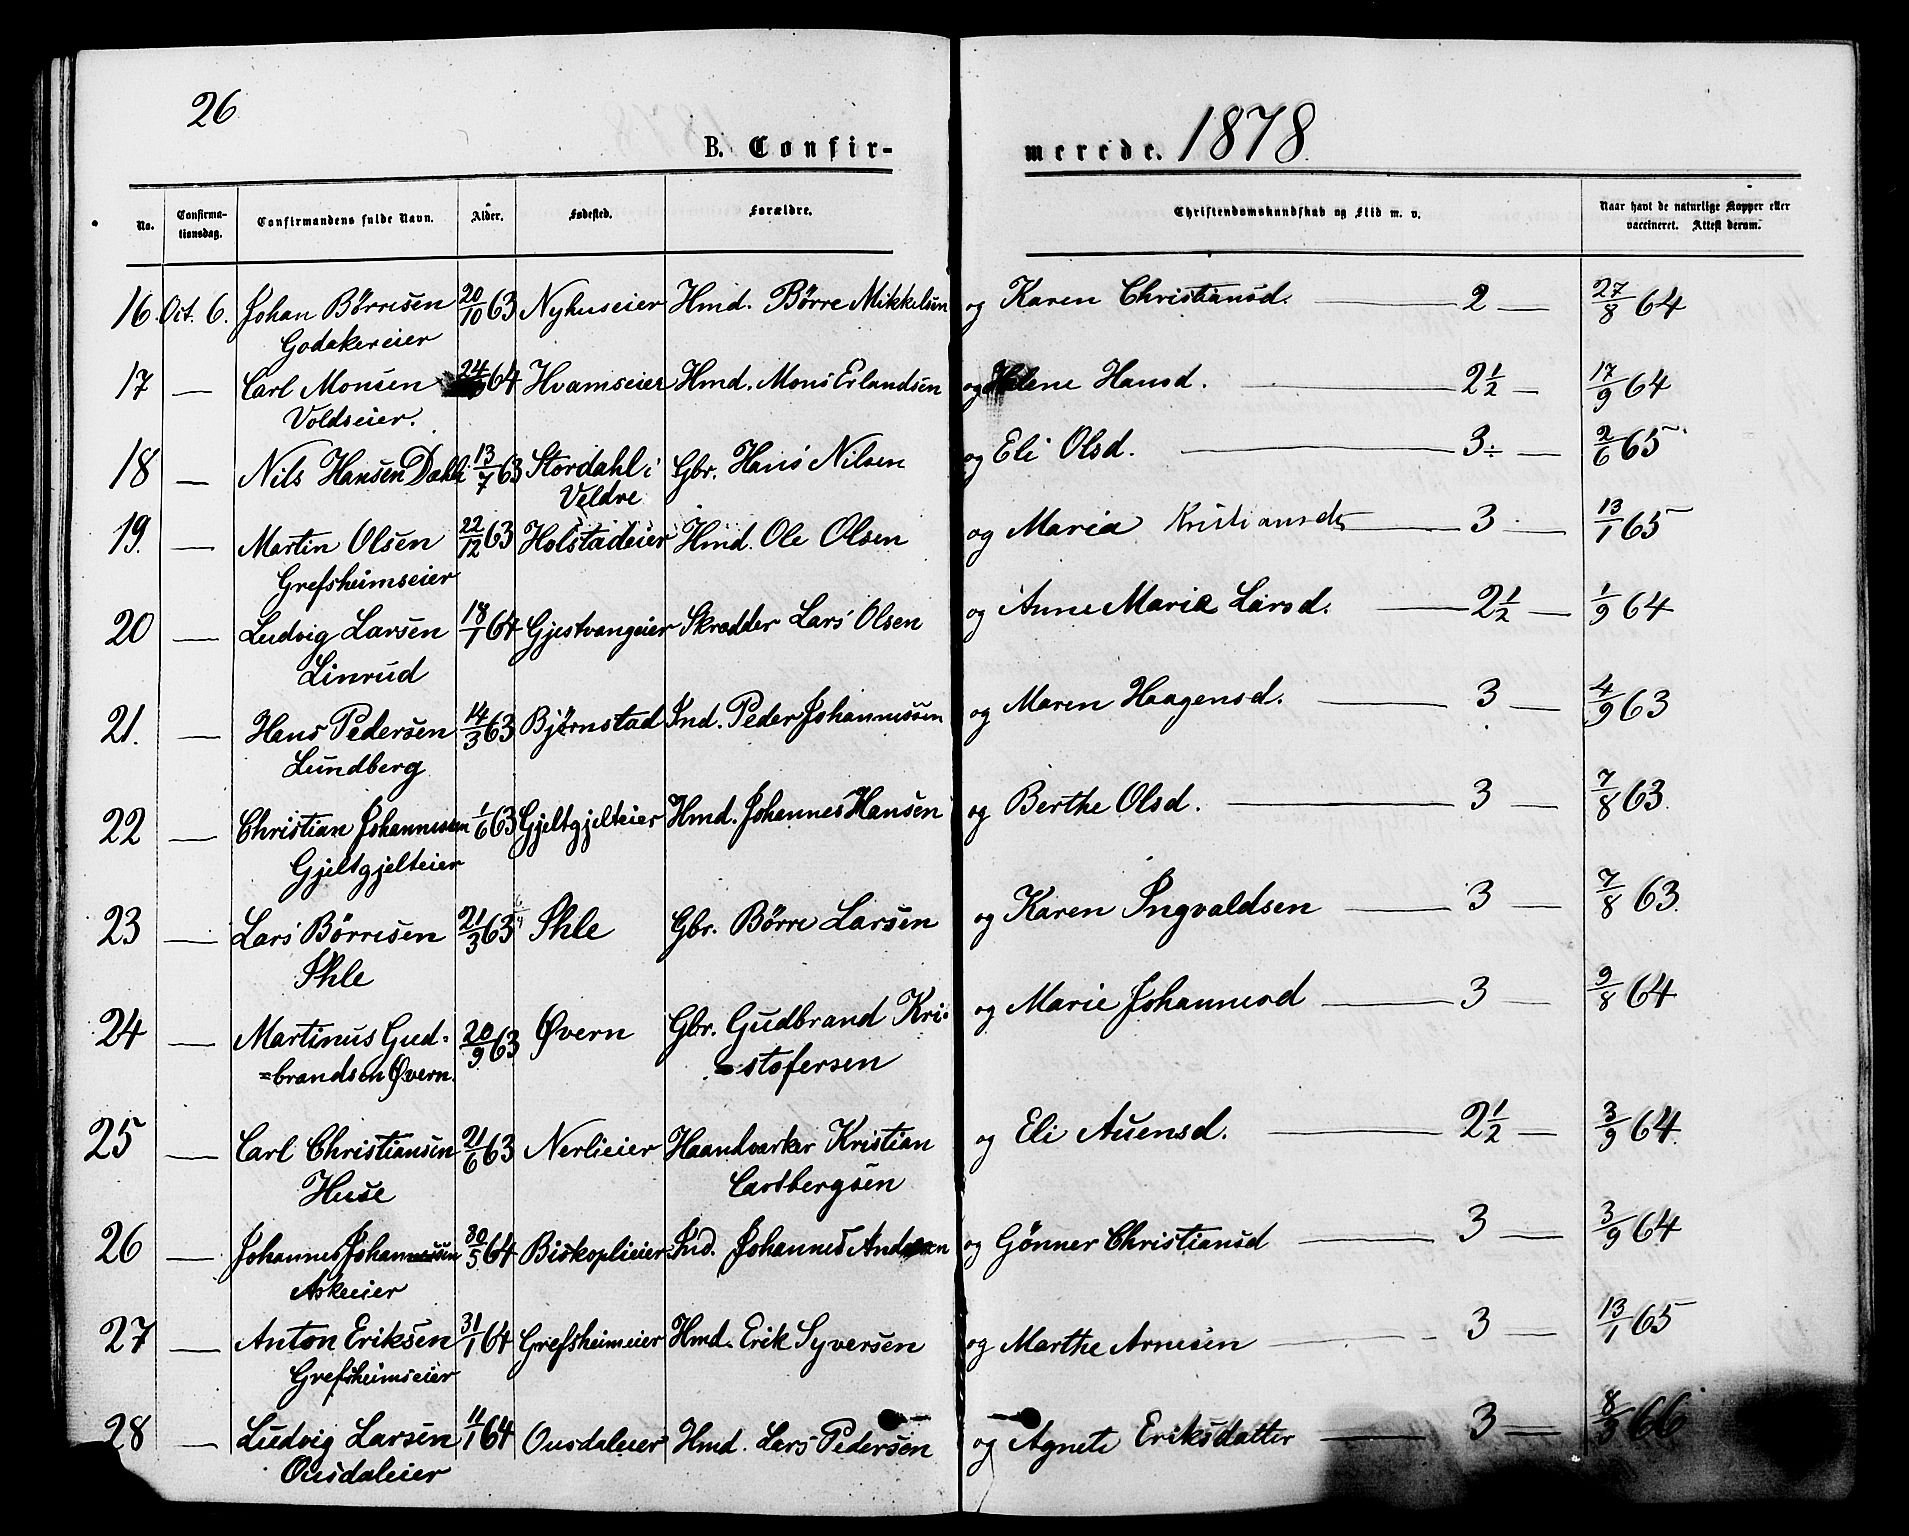 26
B. Confirmerede. 1878.
No. Confirmationsdag. Confirmandens fulde Navn. Alder. Fødested. Forældre. Christendomskundskab og Flid m. v. Naar havt de naturlige Kopper eller vaccineret. Attest derom.
16. Oct. 6. Johan Børresen 20/10 63 Nyhuseier Hmd. Børre Mikkelsen og Karen Christiansd. — 2 — 27/8 64
Godakereier
17 — Carl Monsen 64 Hvamseier Hmd. Mons Erlandsen og Helene Hansd. — 2 1/2 — 17/9 64
Voldseier.
18 — Nils Hansen Dahl 13/7 63 Stordahl i Gbr. Hans Nilsen og Eli Olsd. — 3÷ — 2/6 65
Veldre
19. — Martin Olsen 22/12 63 Holstadeier Hmd. Ole Olsen og Maria Kristiansdt — 3 — 13/1 65
Grefsheimseier
20 — Ludvig Larsen 18/1 64 Gjestvangeier Skrædder Lars Olsen og Anne Marie Larsd. — 2 1/2 — 1/9 64
Linrud
21. — Hans Pedersen 14/3 63 Bjørnstad Ind. Peder Johannessen og Maren Haagensd. — 3 — 4/9 63
Lundberg
22 — Christian Johannesen 1/6 63 Gjeltgjelteier Hmd. Johannes Hansen og Berthe Olsd. — 3 — 7/8 63.
Gjeltgjelteier
23 — Lars Børresen 21/3 63 Ihle Gbr. Børre Larsen og Karen Ingvaldsen — 3 — 7/8 63.
Ihle
24 — Martinus Gud- 20/9 63 Øvern Gbr. Gudbrand Kri- og Marie Johannesd — 3 — 9/8 64
=brandsen Øvern. =stofersen
25 — Carl Christiansen 21/6 63 Nerlieier Haandværker Kristian og Eli Auensd. — 2 1/2 — 3/9 64.
Huse Carlbergsen
26 — Johannes Johannessen 30/5 64 Biskoplieier Ind. Johannes Andersen og Gønner Christiansd — 3 — 3/9 64
Askeeier
27 — Anton Eriksen 31/1 64 Grefsheimeier Hmd. Erik Syversen og Marthe Arnesen — 3 — 13/1 65
Grefsheimseier
28 — Ludvig Larsen 11/1 64 Ousdaleier Hmd. Lars Pedersen og Agnete Eriksdatter — 3 — 8/3 66
Ousdaleier